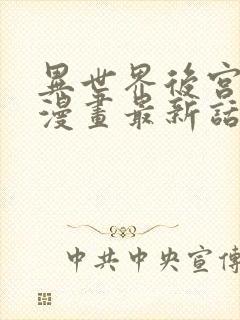 異世界後宮
漫畫最新話
中共中央宣傳